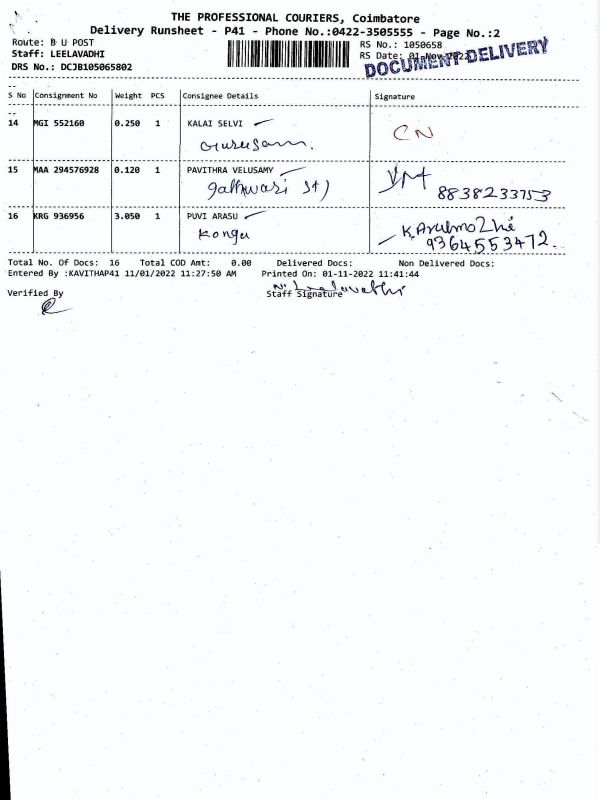 THE PROFESSIONAL COURIERS, Coimbatore
Delivery Runsheet - P41 - Phone No.:0422-3505555 - Page No.:2
Route: B U POST
RS No.: 1050658
Staff: LEELAVADHI
RS Date: 01-Nov-2022
DRS No.: DCJB105065802
DOCUMENT DELIVERY
S No Consignment No Weight PCS Consignee Details Signature
14 MGI 552160 0.250 1 KALAI SELVI
CN
15 MAA 294576928 0.120 1 PAVITHRA VELUSAMY
8838233753
16 KRG 936956 3.050 1 PUVI ARASU
Kongu
K.Arulmozhi
9364553472.
Total No. Of Docs: 16 Total COD Amt: 0.00 Delivered Docs: Non Delivered Docs:
Entered By :KAVITHAP41 11/01/2022 11:27:50 AM Printed On: 01-11-2022 11:41:44
Verified By
Staff Signature